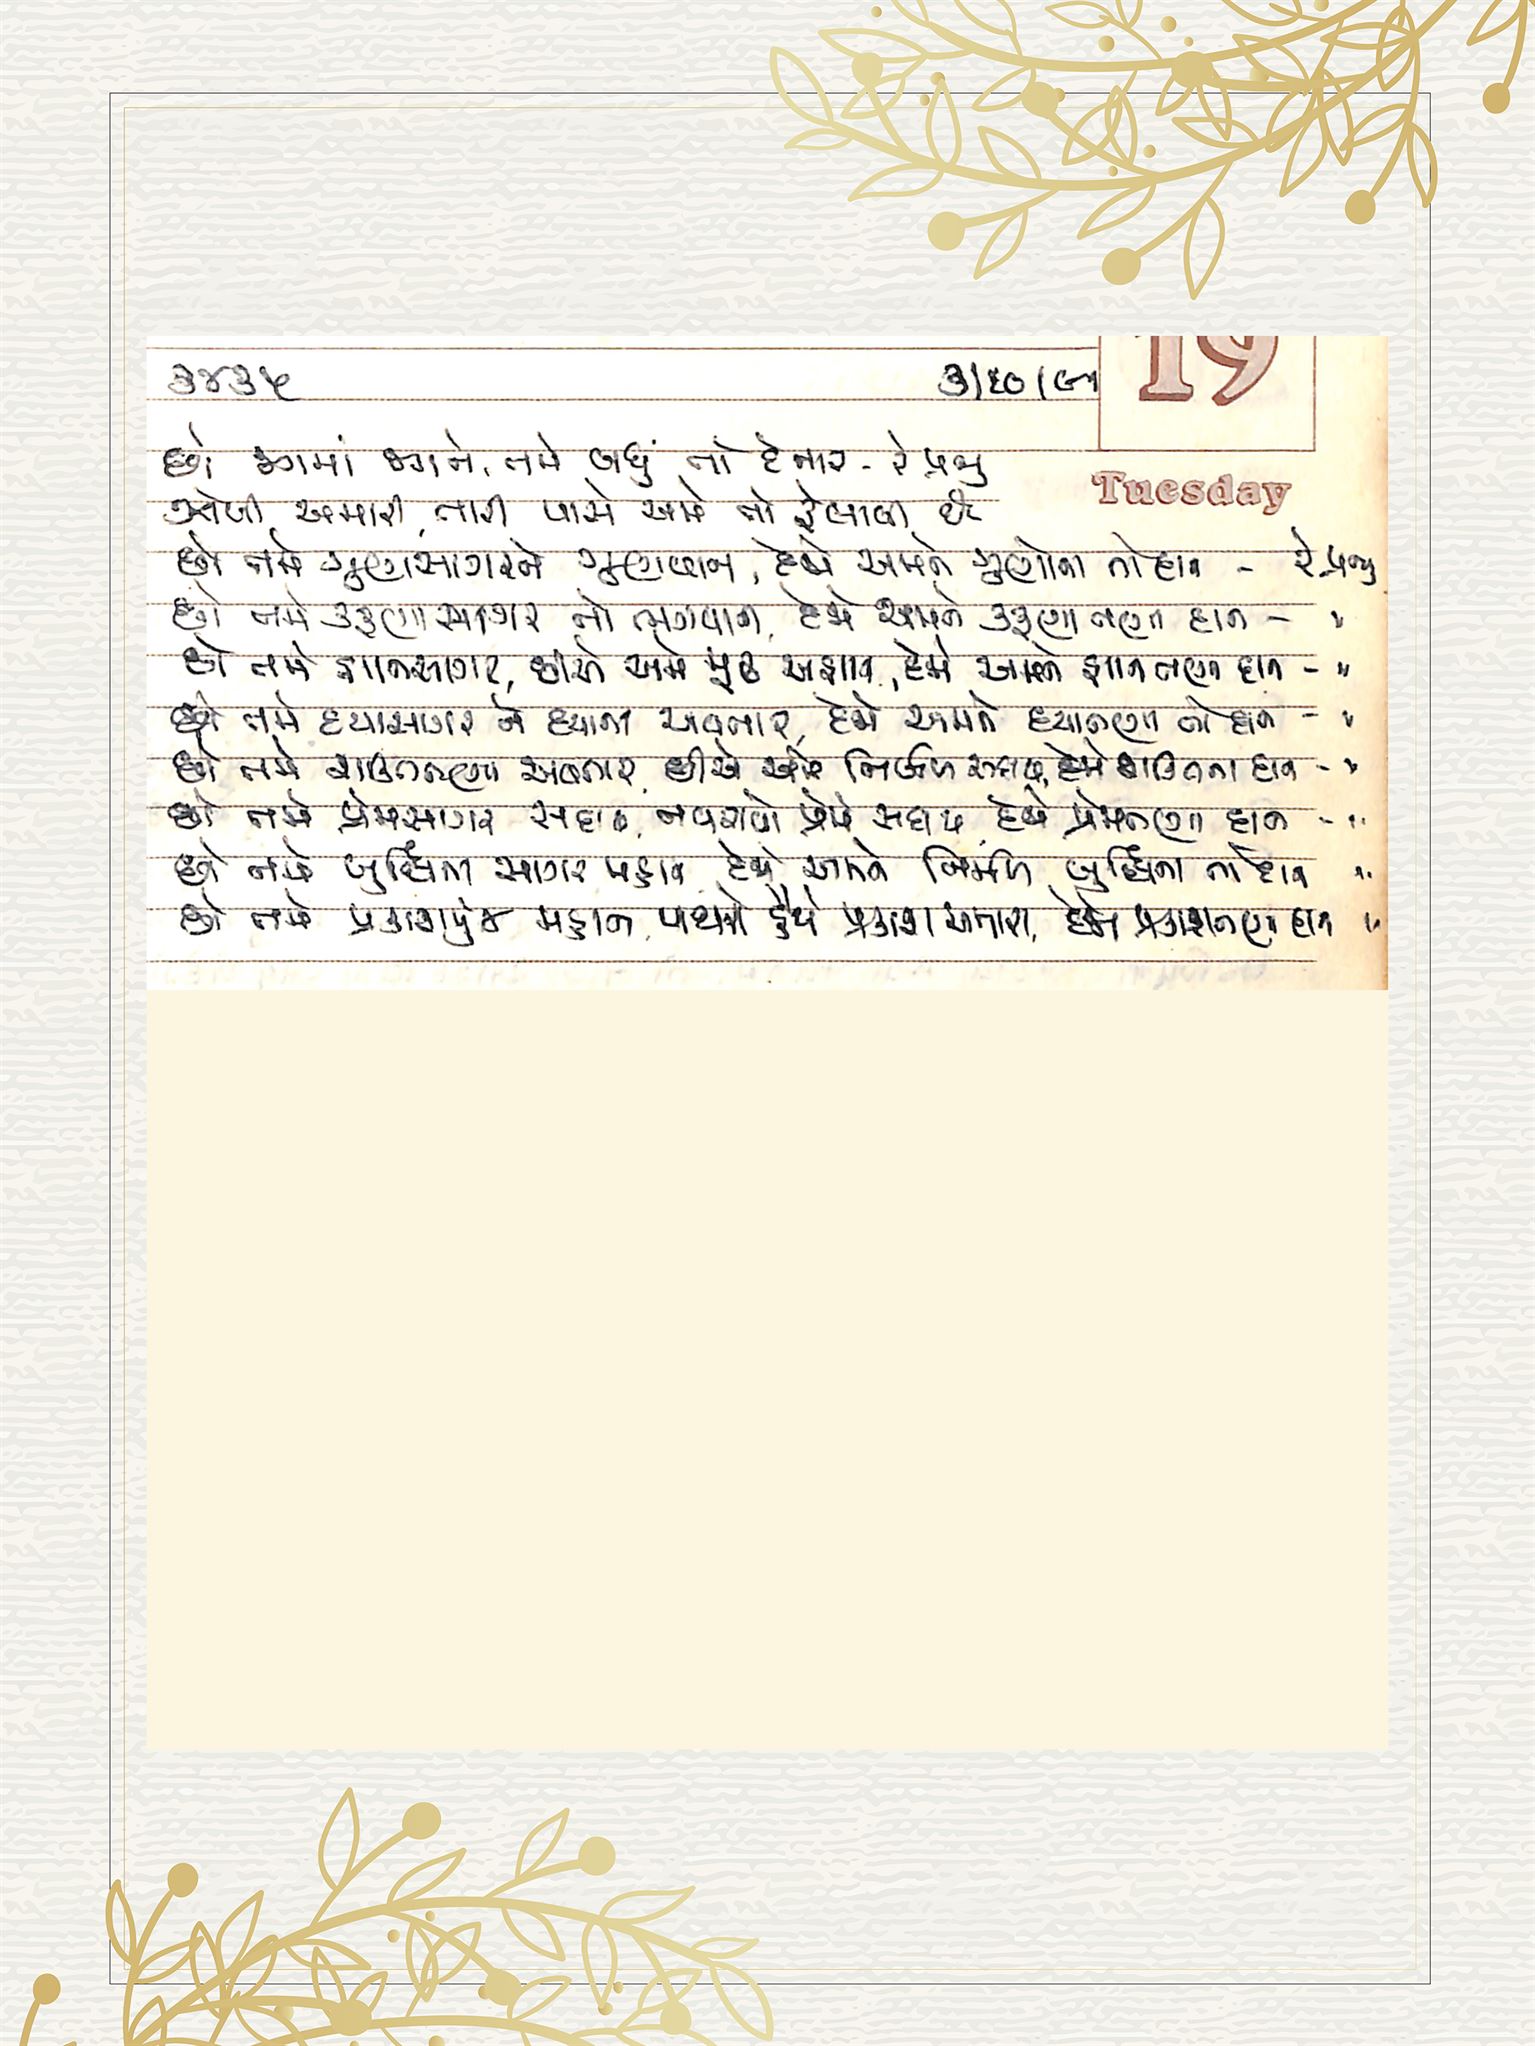 ૩૪૩૫ ૩/૧૦/૯૧
19
Tuesday
છો જગમાં જગને, તમે બધું તો દેનાર - રે પ્રભુ
ઝોળી અમારી, તારી પાસે અમે તો ફેલાવી છે
છો તમે ગુણસાગરને ગુણવાન, દેજો અમને ગુણોના તો દાન - રે પ્રભુ
છો તમે કરૂણાસાગર તો ભગવાન, દેજો અમને કરૂણા તણા દાન - "
છો તમે જ્ઞાનસાગર, છીએ અમે મૂઢ અજ્ઞાન, દેજો અમને જ્ઞાન તણા દાન - "
છો તમે દયાસાગર ને દયાના અવતાર, દેજો અમને દયાતણા તો દાન - "
છો તમે શક્તિતણા અવતાર, છીએ અમે નિર્બળ સદાય, દેજો શક્તિના દાન - "
છો તમે પ્રેમસાગર સદાય, નવરાવો પ્રેમે સદાય, દેજો પ્રેમતણા દાન - "
છો તમે બુદ્ધિના સાગર મહાન, દેજો અમને નિર્મળ બુદ્ધિના તો દાન "
છો તમે પ્રકાશપુંજ મહાન, પાથરો હૈયે પ્રકાશ અમારા, દેજો પ્રકાશતણા દાન "